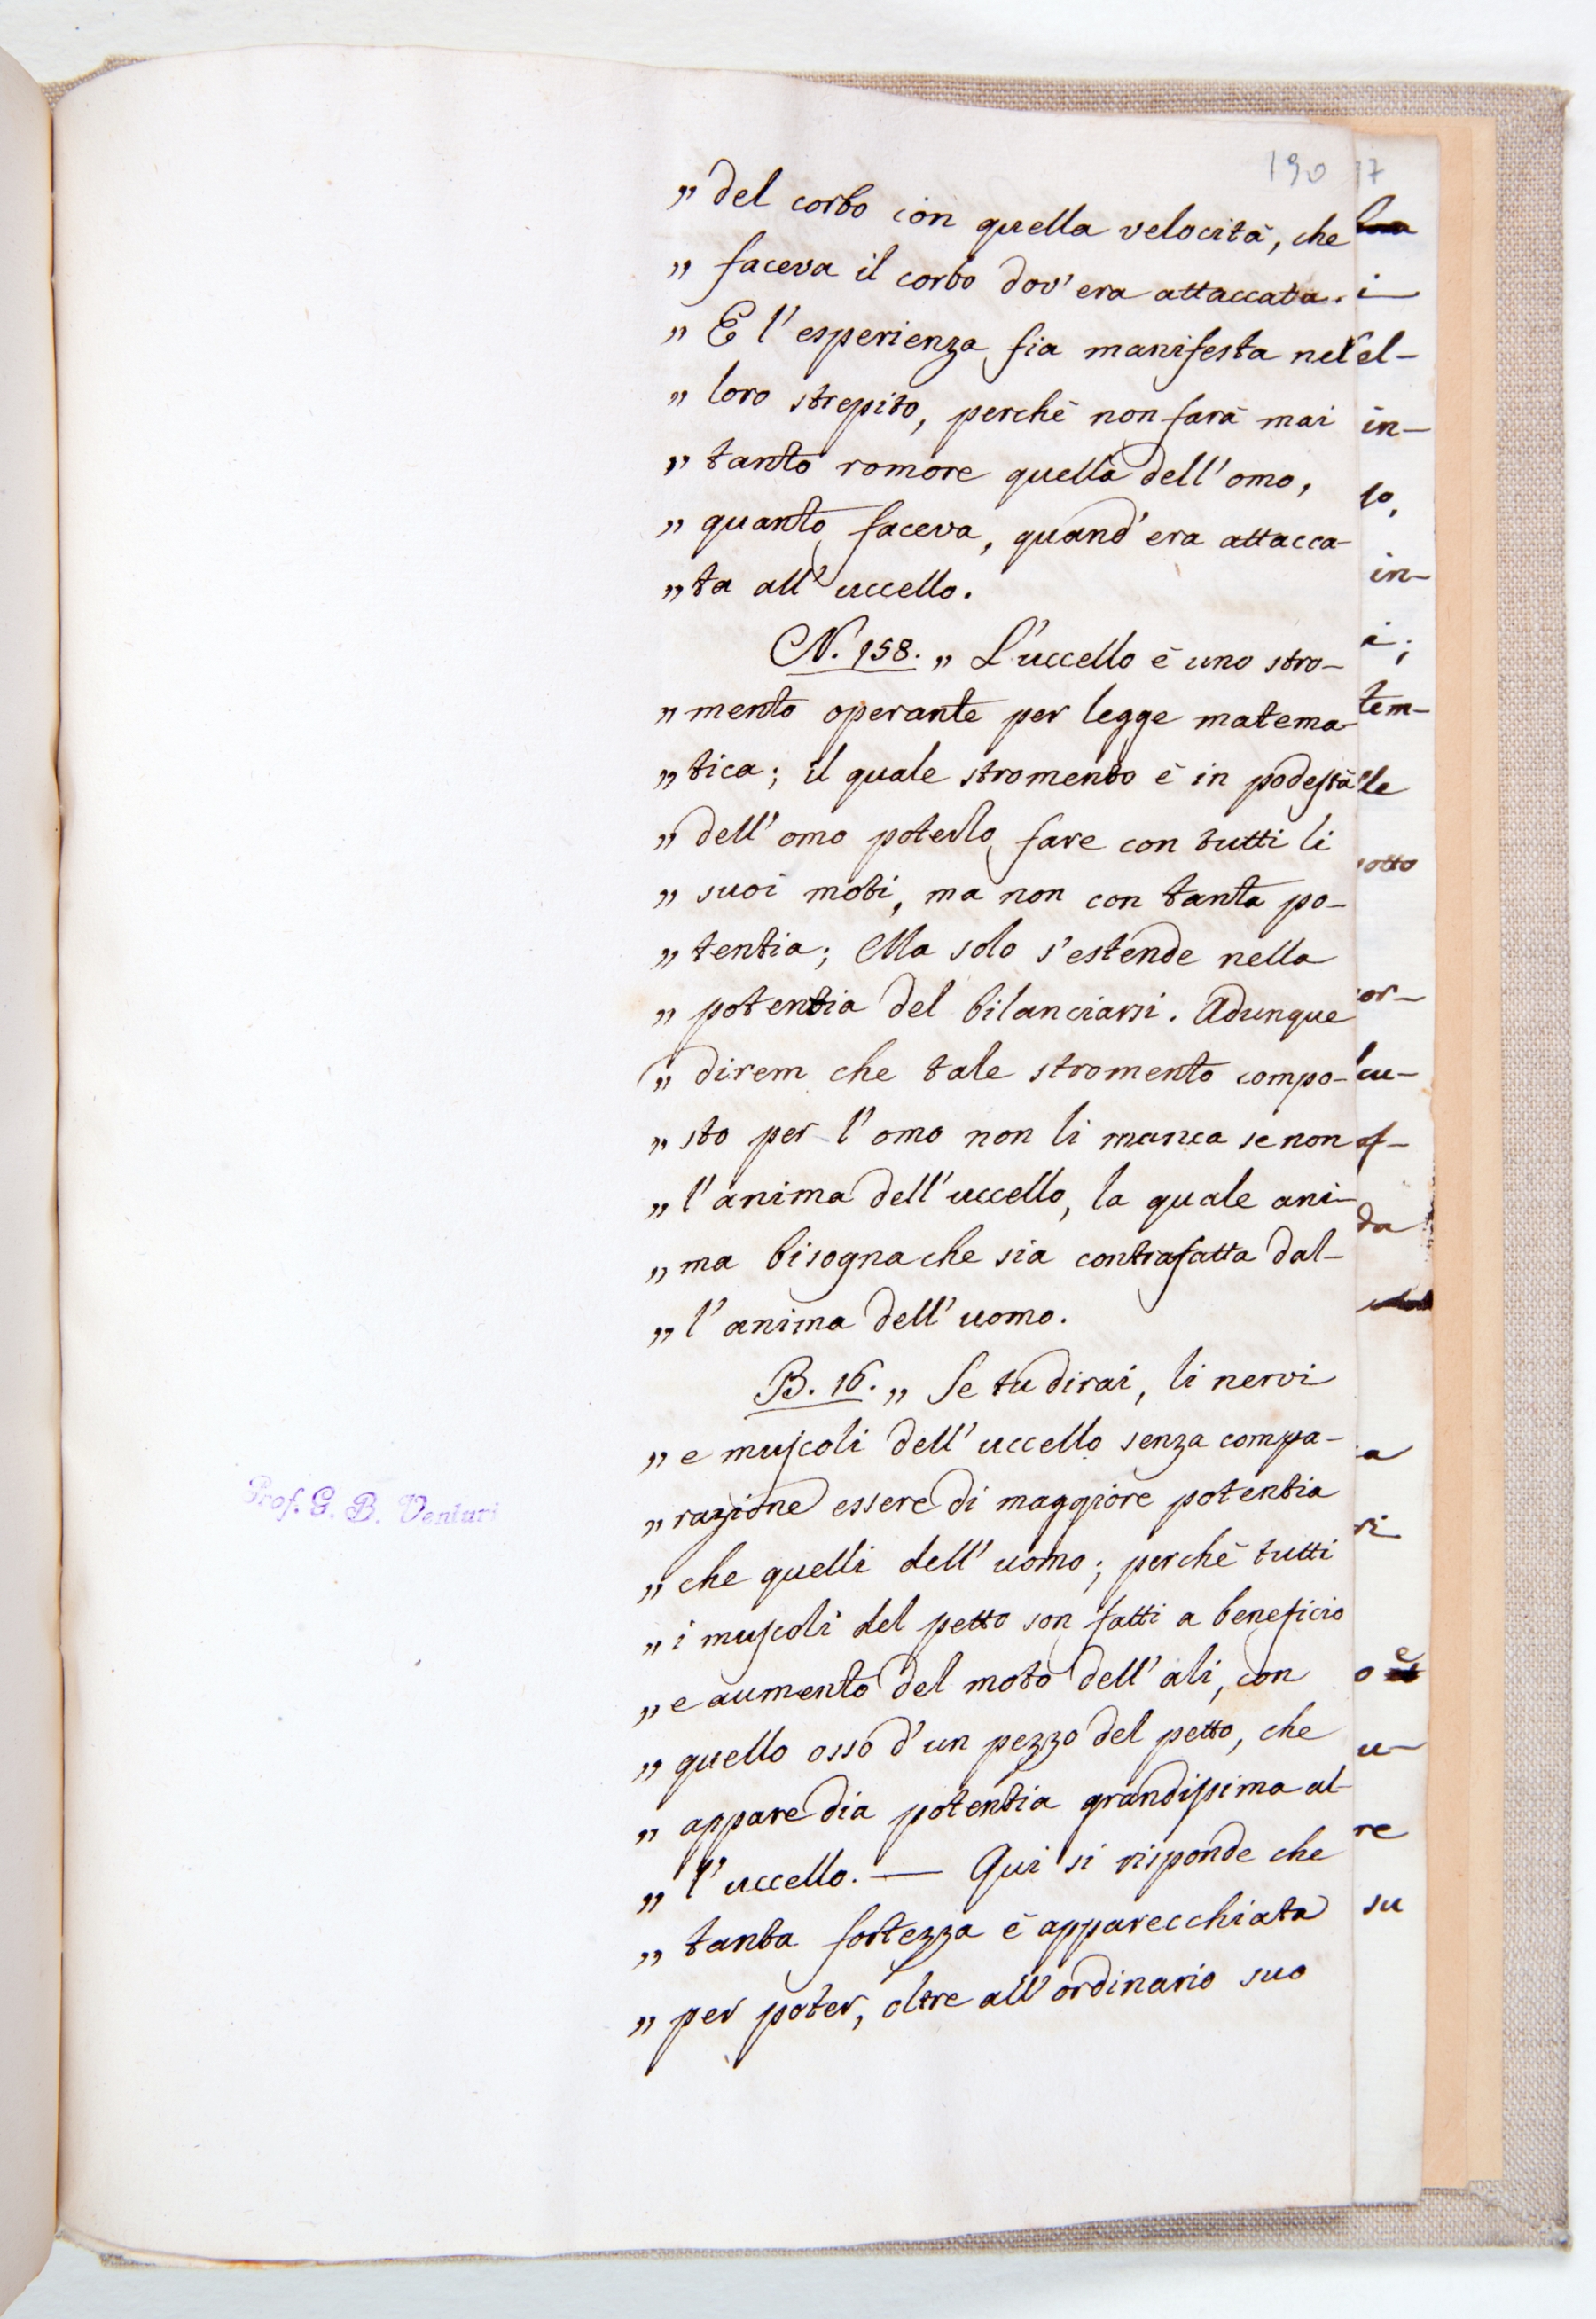 190
„ del corbo con quella velocità, che
„ faceva il corbo dov' era attaccata.
„ E l'esperienza fia manifesta nel
„ loro strepito, perchè non farà mai
„ tanto romore quella dell'omo,
„ quanto faceva, quand'era attacca-
„ ta all'uccello.
N. 158. „ L'uccello è uno stro-
„ mento operante per legge matema-
„ tica; il quale stromento è in podestà
„ dell'omo poterlo fare con tutti li
„ suoi moti, ma non con tanta po-
„ tentia; Ma solo s'estende nella
„ potentia del bilanciarsi. Adunque
„ direm che tale stromento compo-
„ sto per l'omo non li manca se non
„ l'anima dell'uccello, la quale ani-
„ ma bisogna che sia contrafatta dal-
„ l'anima dell'uomo.
B. 16. „ Se tu dirai, li nervi
„ e muscoli dell'uccello senza compa-
„ razione essere di maggiore potentia
„ che quelli dell'uomo; perchè tutti
„ i muscoli del petto son fatti a beneficio
„ e aumento del moto dell'ali, con
„ quello osso d'un pezzo del petto, che
„ appare dia potentia grandissima al-
„ l'uccello. — Qui si risponde che
„ tanta fortezza è apparecchiata
„ per poter, oltre all'ordinario suo
Prof. G. B. Venturi
17
i
el-
in-
lo,
in-
i;
tem-
lle
sotto
cor-
cu-
da
a
ri
o è
u-
re
su